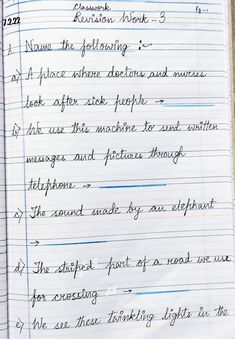 Classwork Pg-1
7.2.22 Revision Work - 3
A. Name the following :-
a) A place where doctors and nurses
look after sick people →
b) We use this machine to send written
messages and pictures through
telephone →
c) The sound made by an elephant
→
d) The striped part of a road we use
for crossing →
e) We see these twinkling lights in the